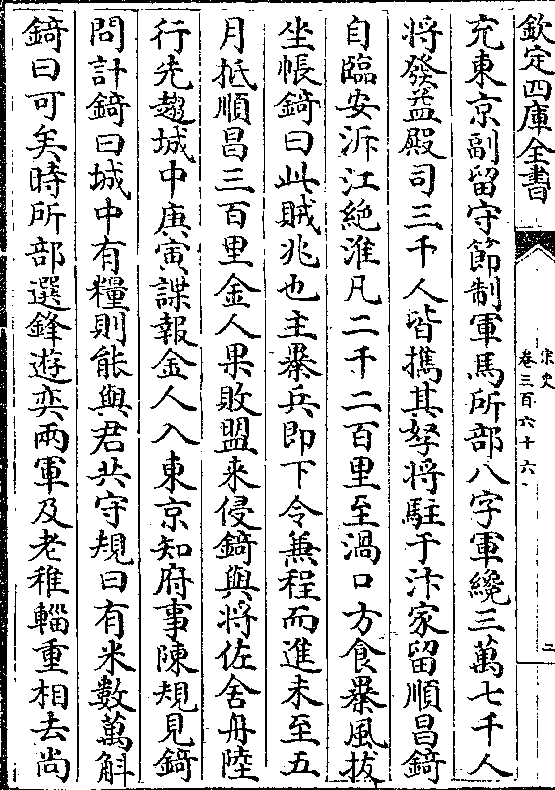 欽定四庫全書
宋史
卷三百六十六
二
充東京副留守節制軍馬所部八字軍纔三萬七千人
將發益殿司三千人皆攜其孥將駐于汴家留順昌錡
自臨安泝江絶淮凡二千二百里至渦口方食暴風拔
坐帳錡曰此賊兆也主暴兵即下令兼程而進未至五
月抵順昌三百里金人果敗盟来侵錡與將佐舍舟陸
行先趨城中庚寅諜報金人入東京知府事陳規見錡
問計錡曰城中有糧則能與君共守規曰有米數萬斛
錡曰可矣時所部選鋒遊奕兩軍及老稚輜重相去尚